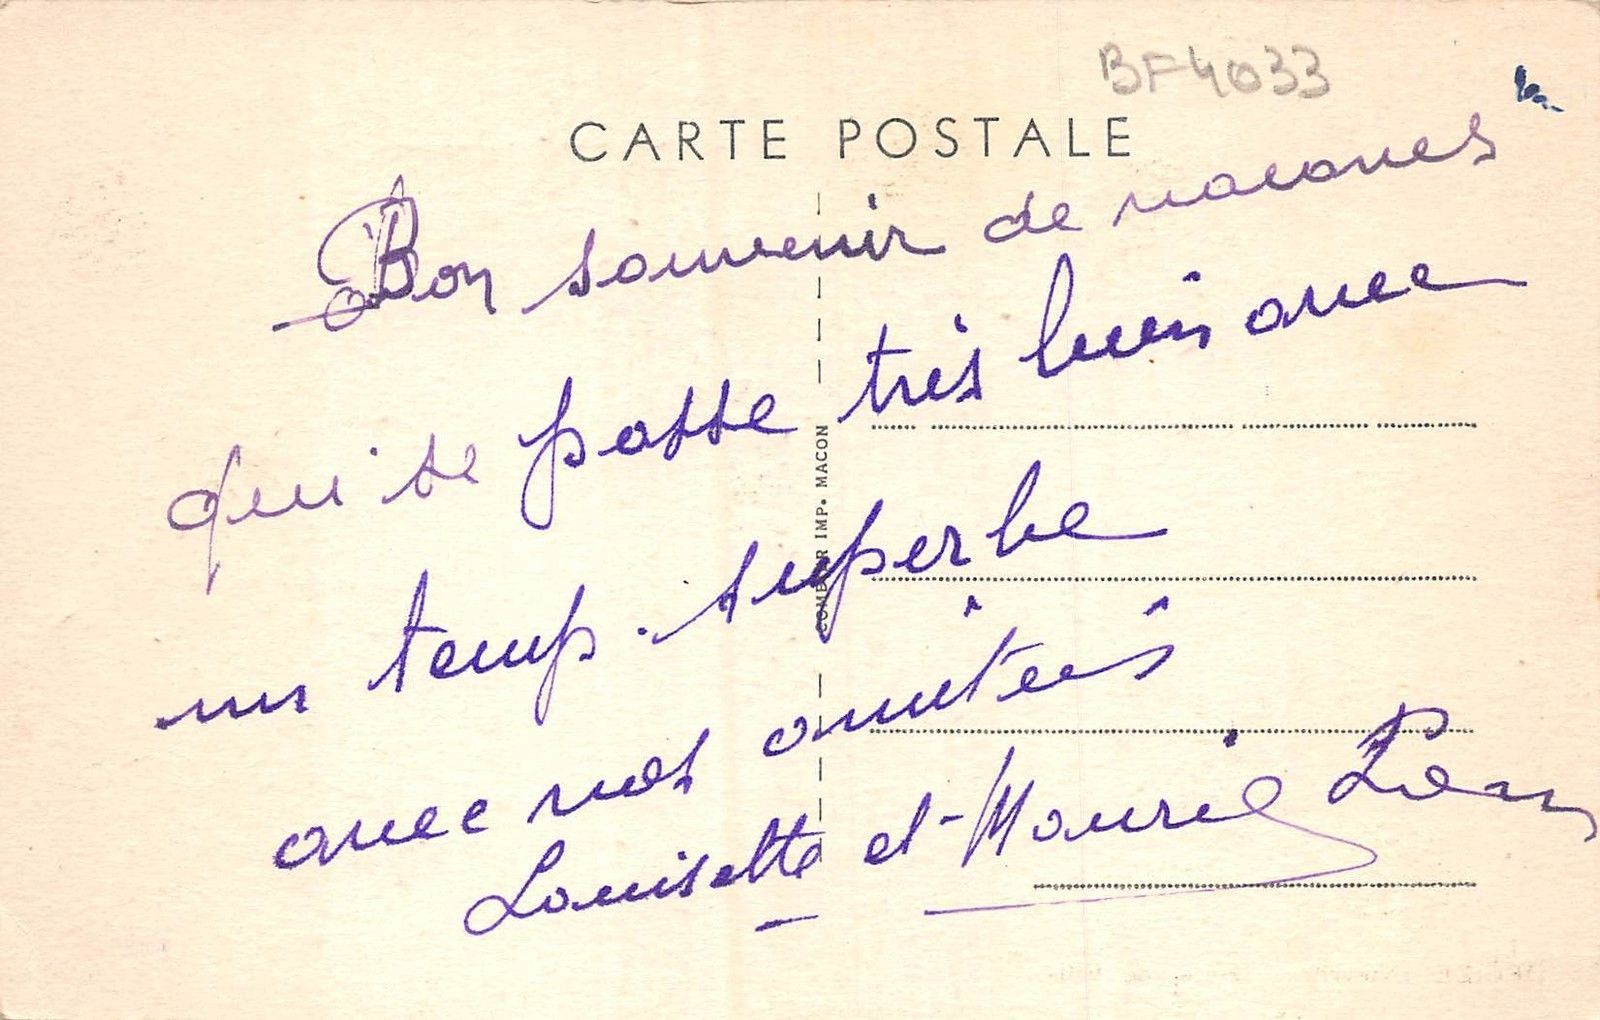 BF4033
CARTE POSTALE
Bon souvenir de vacances
qui se passe très bien avec
un temp. superbe
avec nos amitiés
Louisette et Mauric
COMBIER IMP. MACON